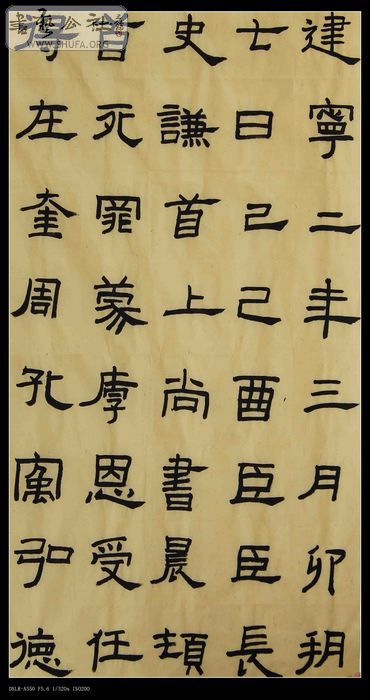 書藝公社
WWW.SHUFA.ORG
建寧二年三月卯朔
七日己己酉臣臣長
史謙首上尚書晨頓
首死罪蒙厚恩受任
在奎周孔㝢弘德
DSLR-A550 F5.6 1/320s ISO200